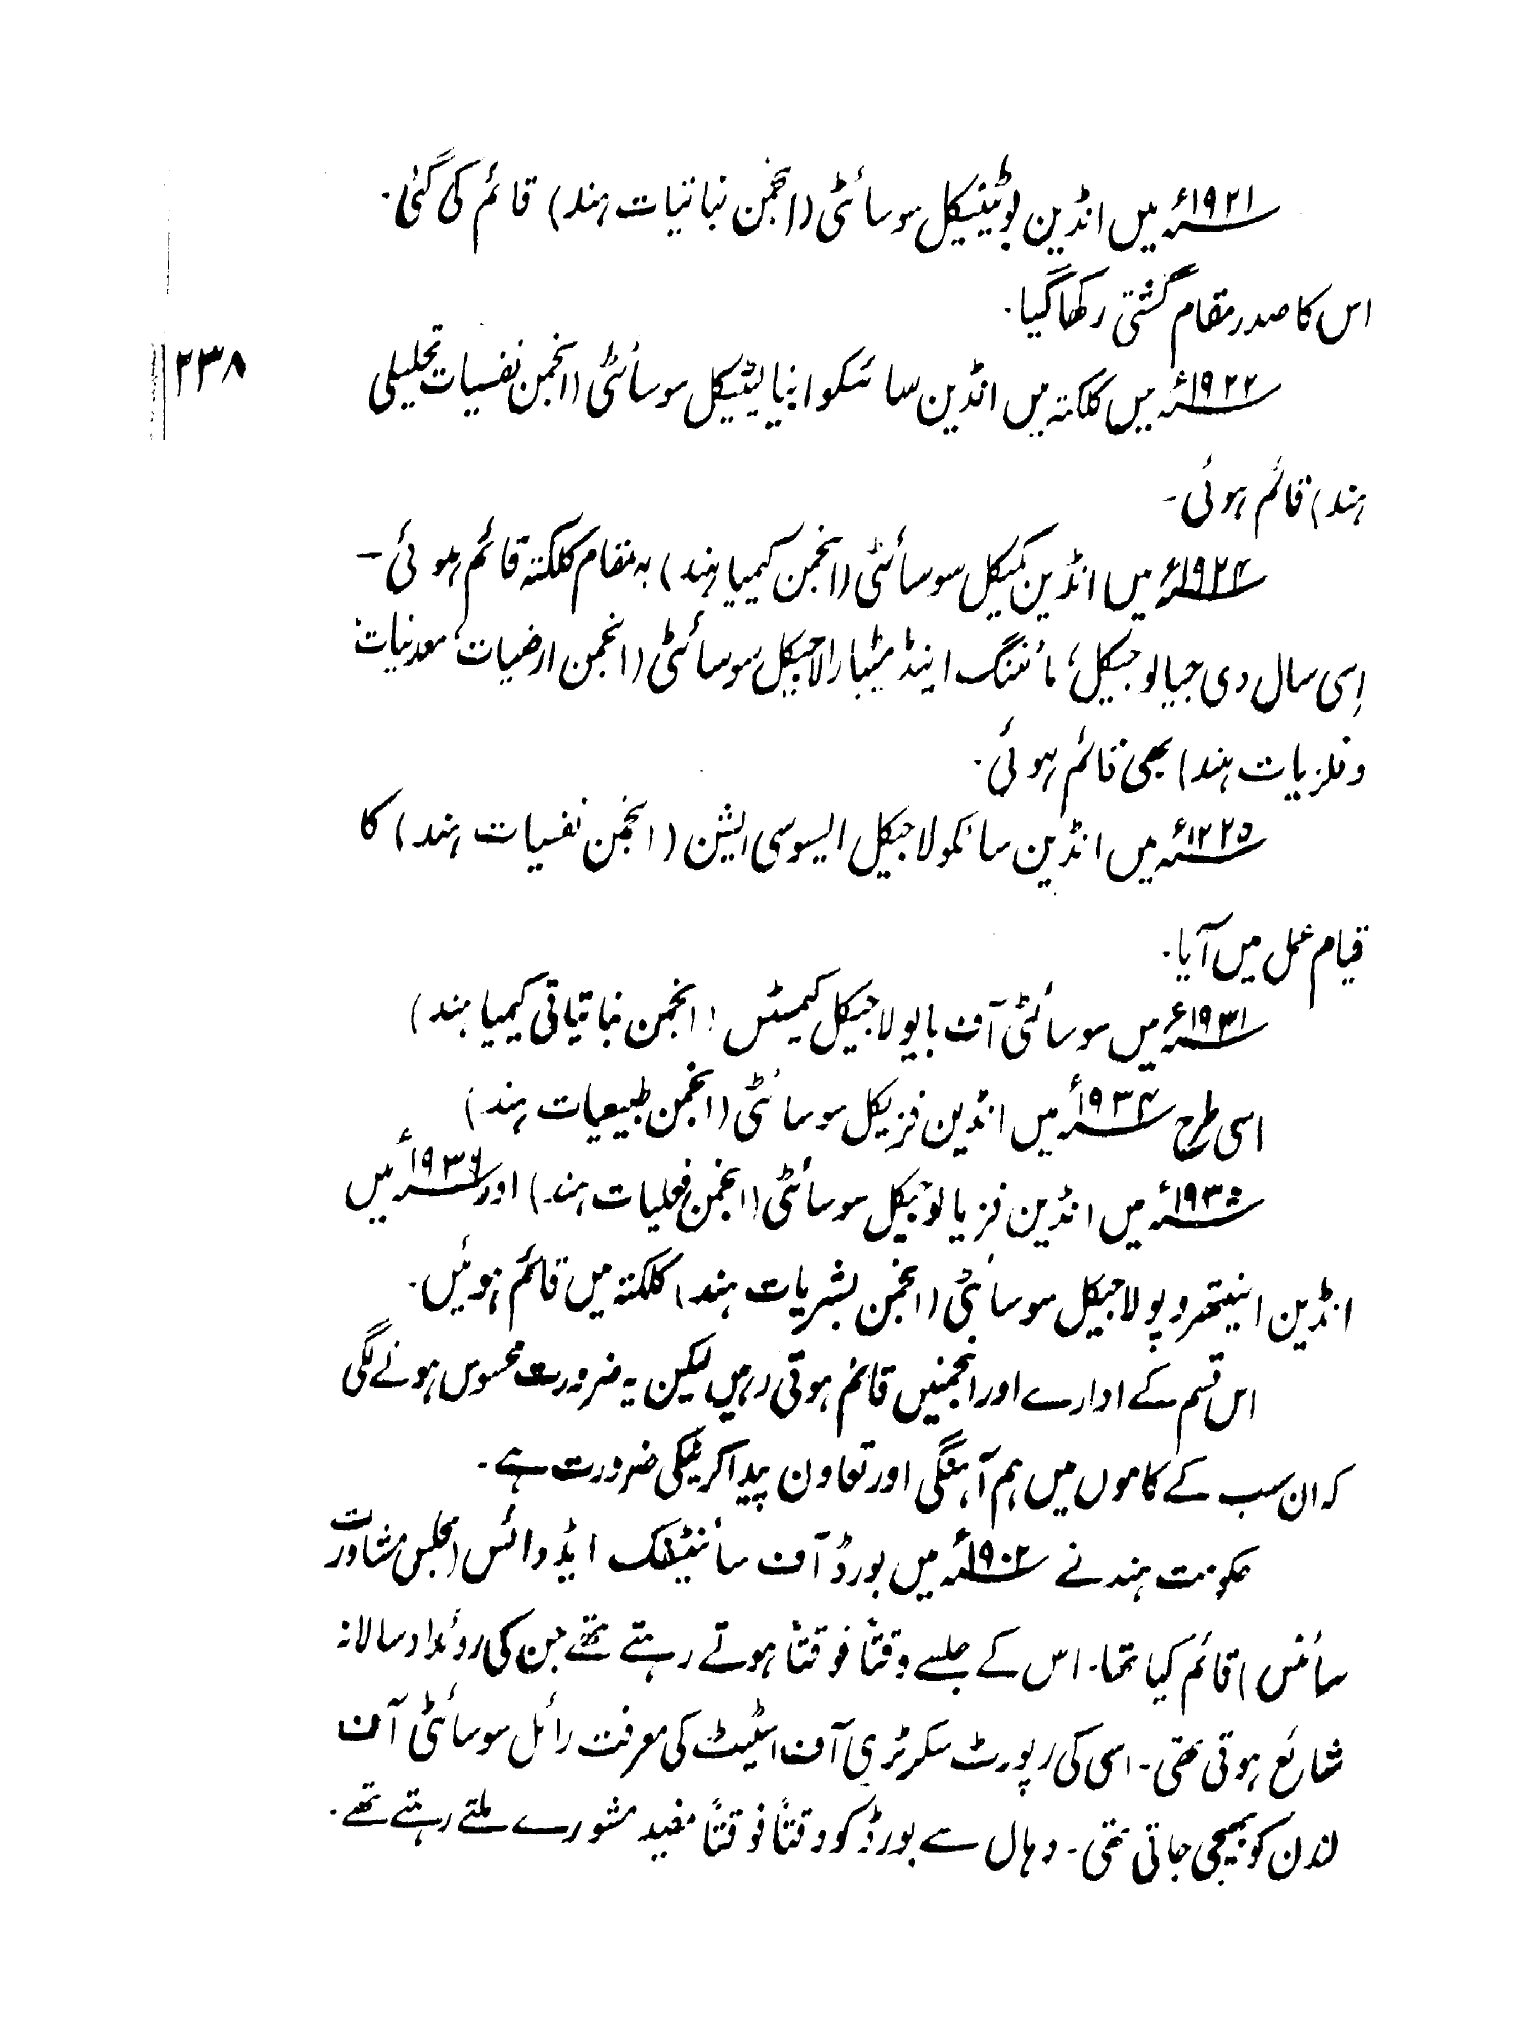 ۱۹۲۱ء میں انڈین بوٹینیکل سوسائٹی (انجمن نباتیات ہند) قائم کی گئی۔
اس کا صدر مقام گشتی رکھا گیا۔
۲۳۸
۱۹۲۲ء میں کلکتہ میں انڈین سائیکو اینا لیٹیکل سوسائٹی (انجمن نفسیات تحلیلی
ہند) قائم ہوئی۔
۱۹۲۴ء میں انڈین کمیکل سوسائٹی (انجمن کیمیا ہند) بہ مقام کلکتہ قائم ہوئی۔
اِسی سال دی جیالوجیکل، مائننگ اینڈ میٹارلاجیکل سوسائٹی (انجمن ارضیات، معدنیات
و فلزیات ہند) بھی قائم ہوئی۔
۱۲۲۵ء میں انڈین سائکولاجیکل ایسوسی ایشن (انجمن نفسیات ہند) کا
قیام عمل میں آیا۔
۱۹۳۱ء میں سوسائٹی آف بایولاجیکل کیمسٹس (انجمن نباتیاتی کیمیا ہند)
اسی طرح ۱۹۳۴ء میں انڈین فزیکل سوسائٹی (انجمن طبیعیات ہند)
۱۹۳۵ء میں انڈین فزیالوجیکل سوسائٹی (انجمن فعلیات ہند) اور ۱۹۳۶ء میں
انڈین اینتھروپولاجیکل سوسائٹی (انجمن بشریات ہند) کلکتہ میں قائم ہوئیں۔
اس قسم کے ادارے اور انجمنیں قائم ہوتی رہیں لیکن یہ ضرورت محسوس ہونے لگی
کہ ان سب کے کاموں میں ہم آہنگی اور تعاون پیدا کرنیکی ضرورت ہے۔
حکومت ہند نے ۱۹۰۲ء میں بورڈ آف سائنٹیفک ایڈوائس (مجلس مشاورت
سائنس) قائم کیا تھا۔ اس کے جلسے وقتاً فوقتاً ہوتے رہتے تھے جن کی روئداد سالانہ
شایع ہوتی تھی۔ اسی کی رپورٹ سکرٹری آف اسٹیٹ کی معرفت رائل سوسائٹی آف
لندن کو بھیجی جاتی تھی۔ وہاں سے بورڈ کو وقتاً فوقتاً مفید مشورے ملتے رہتے تھے۔